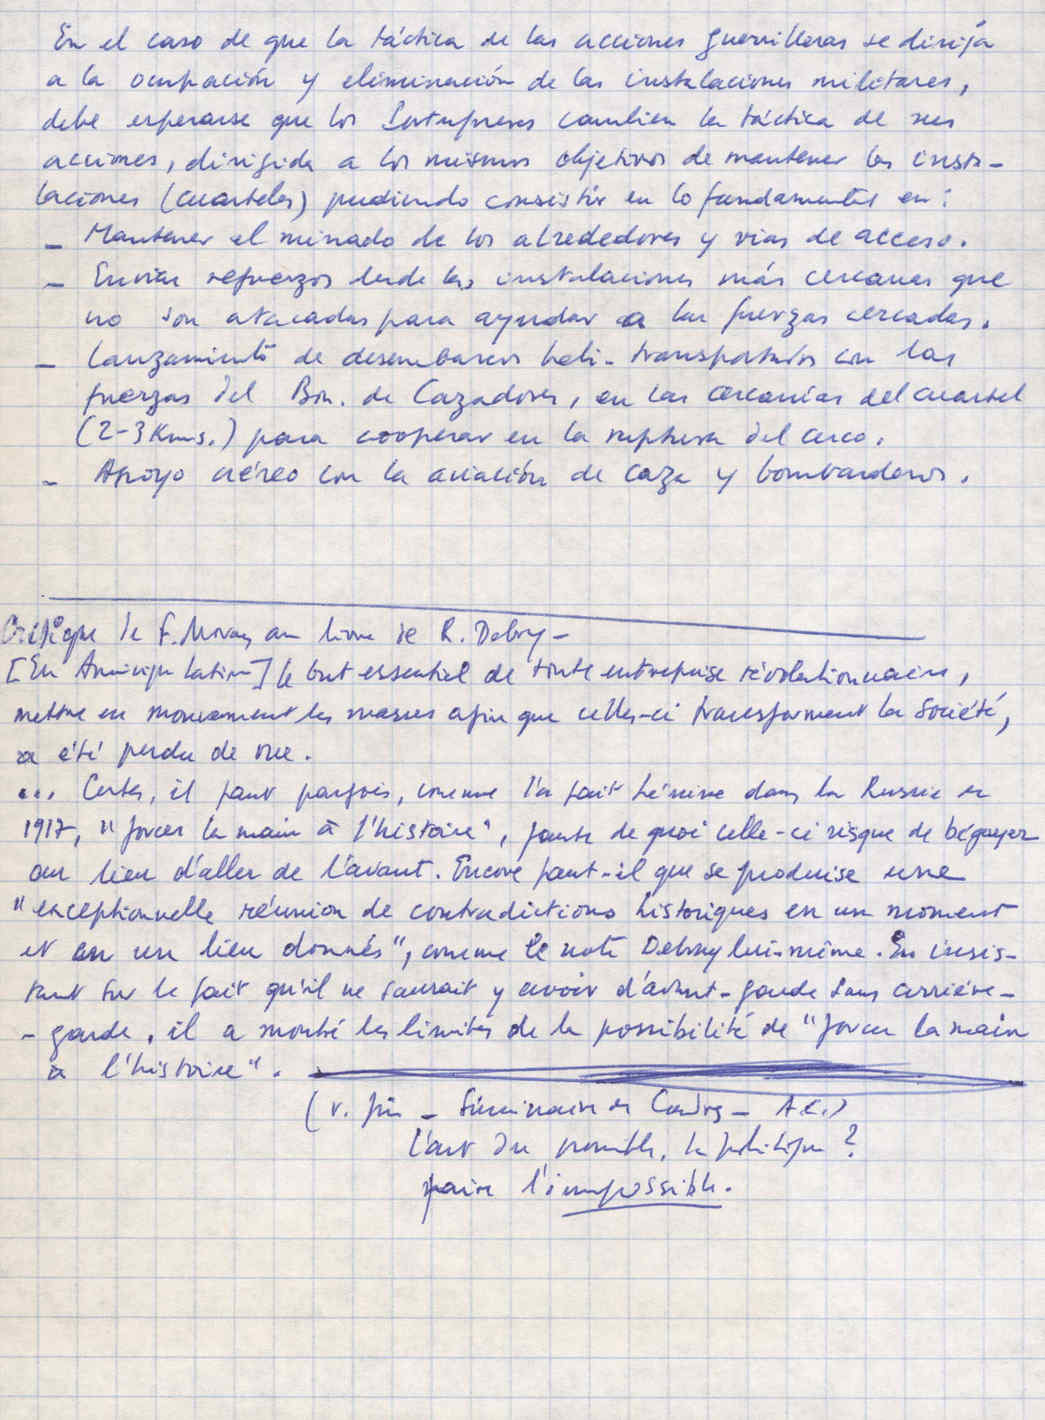 En el caso de que la táctica de las acciones guerrilleras se dirija
a la ocupación y eliminación de las instalaciones militares,
debe esperarse que los Portugueses cambien la táctica de sus
acciones, dirigida a los mismos objetivos de mantener las insta-
laciones (cuarteles) pudiendo consistir en lo fundamental en:
- Mantener el minado de los alrededores y vias de acceso.
- Enviar refuerzos desde las instalaciones más cercanas que
no son atacadas para ayudar a las fuerzas cercadas.
- Lanzamiento de desembarcos heli-transportados con las
fuerzas del Bon. de Cazadores, en las cercanías del cuartel
(2-3 Kms.) para cooperar en la ruptura del cerco.
- Apoyo aéreo con la aviación de caza y bombarderos.
Critique de F. au livre de R. Debray -
[En Amérique Latine] le but essentiel de toute entreprise révolutionnaire,
mettre en mouvement les masses afin que celles-ci transforment la Société,
a été perdu de vue.
... Certes, il faut parfois, comme l'a fait Lénine dans la Russie de
1917, "forcer la main à l'histoire", faute de quoi celle-ci risque de bégayer
au lieu d'aller de l'avant. Encore faut-il que se produise une
"exceptionnelle réunion de contradictions historiques en un moment
et en un lieu donnés", comme le note Debray lui-même. En insis-
tant sur le fait qu'il ne saurait y avoir d'avant-garde sans arrière-
-garde, il a montré les limites de la possibilité de "forcer la main
à l'histoire".
(v. fin - Séminaire de Cadres - A.C.)
L'art du possible, la politique?
faire l'impossible.